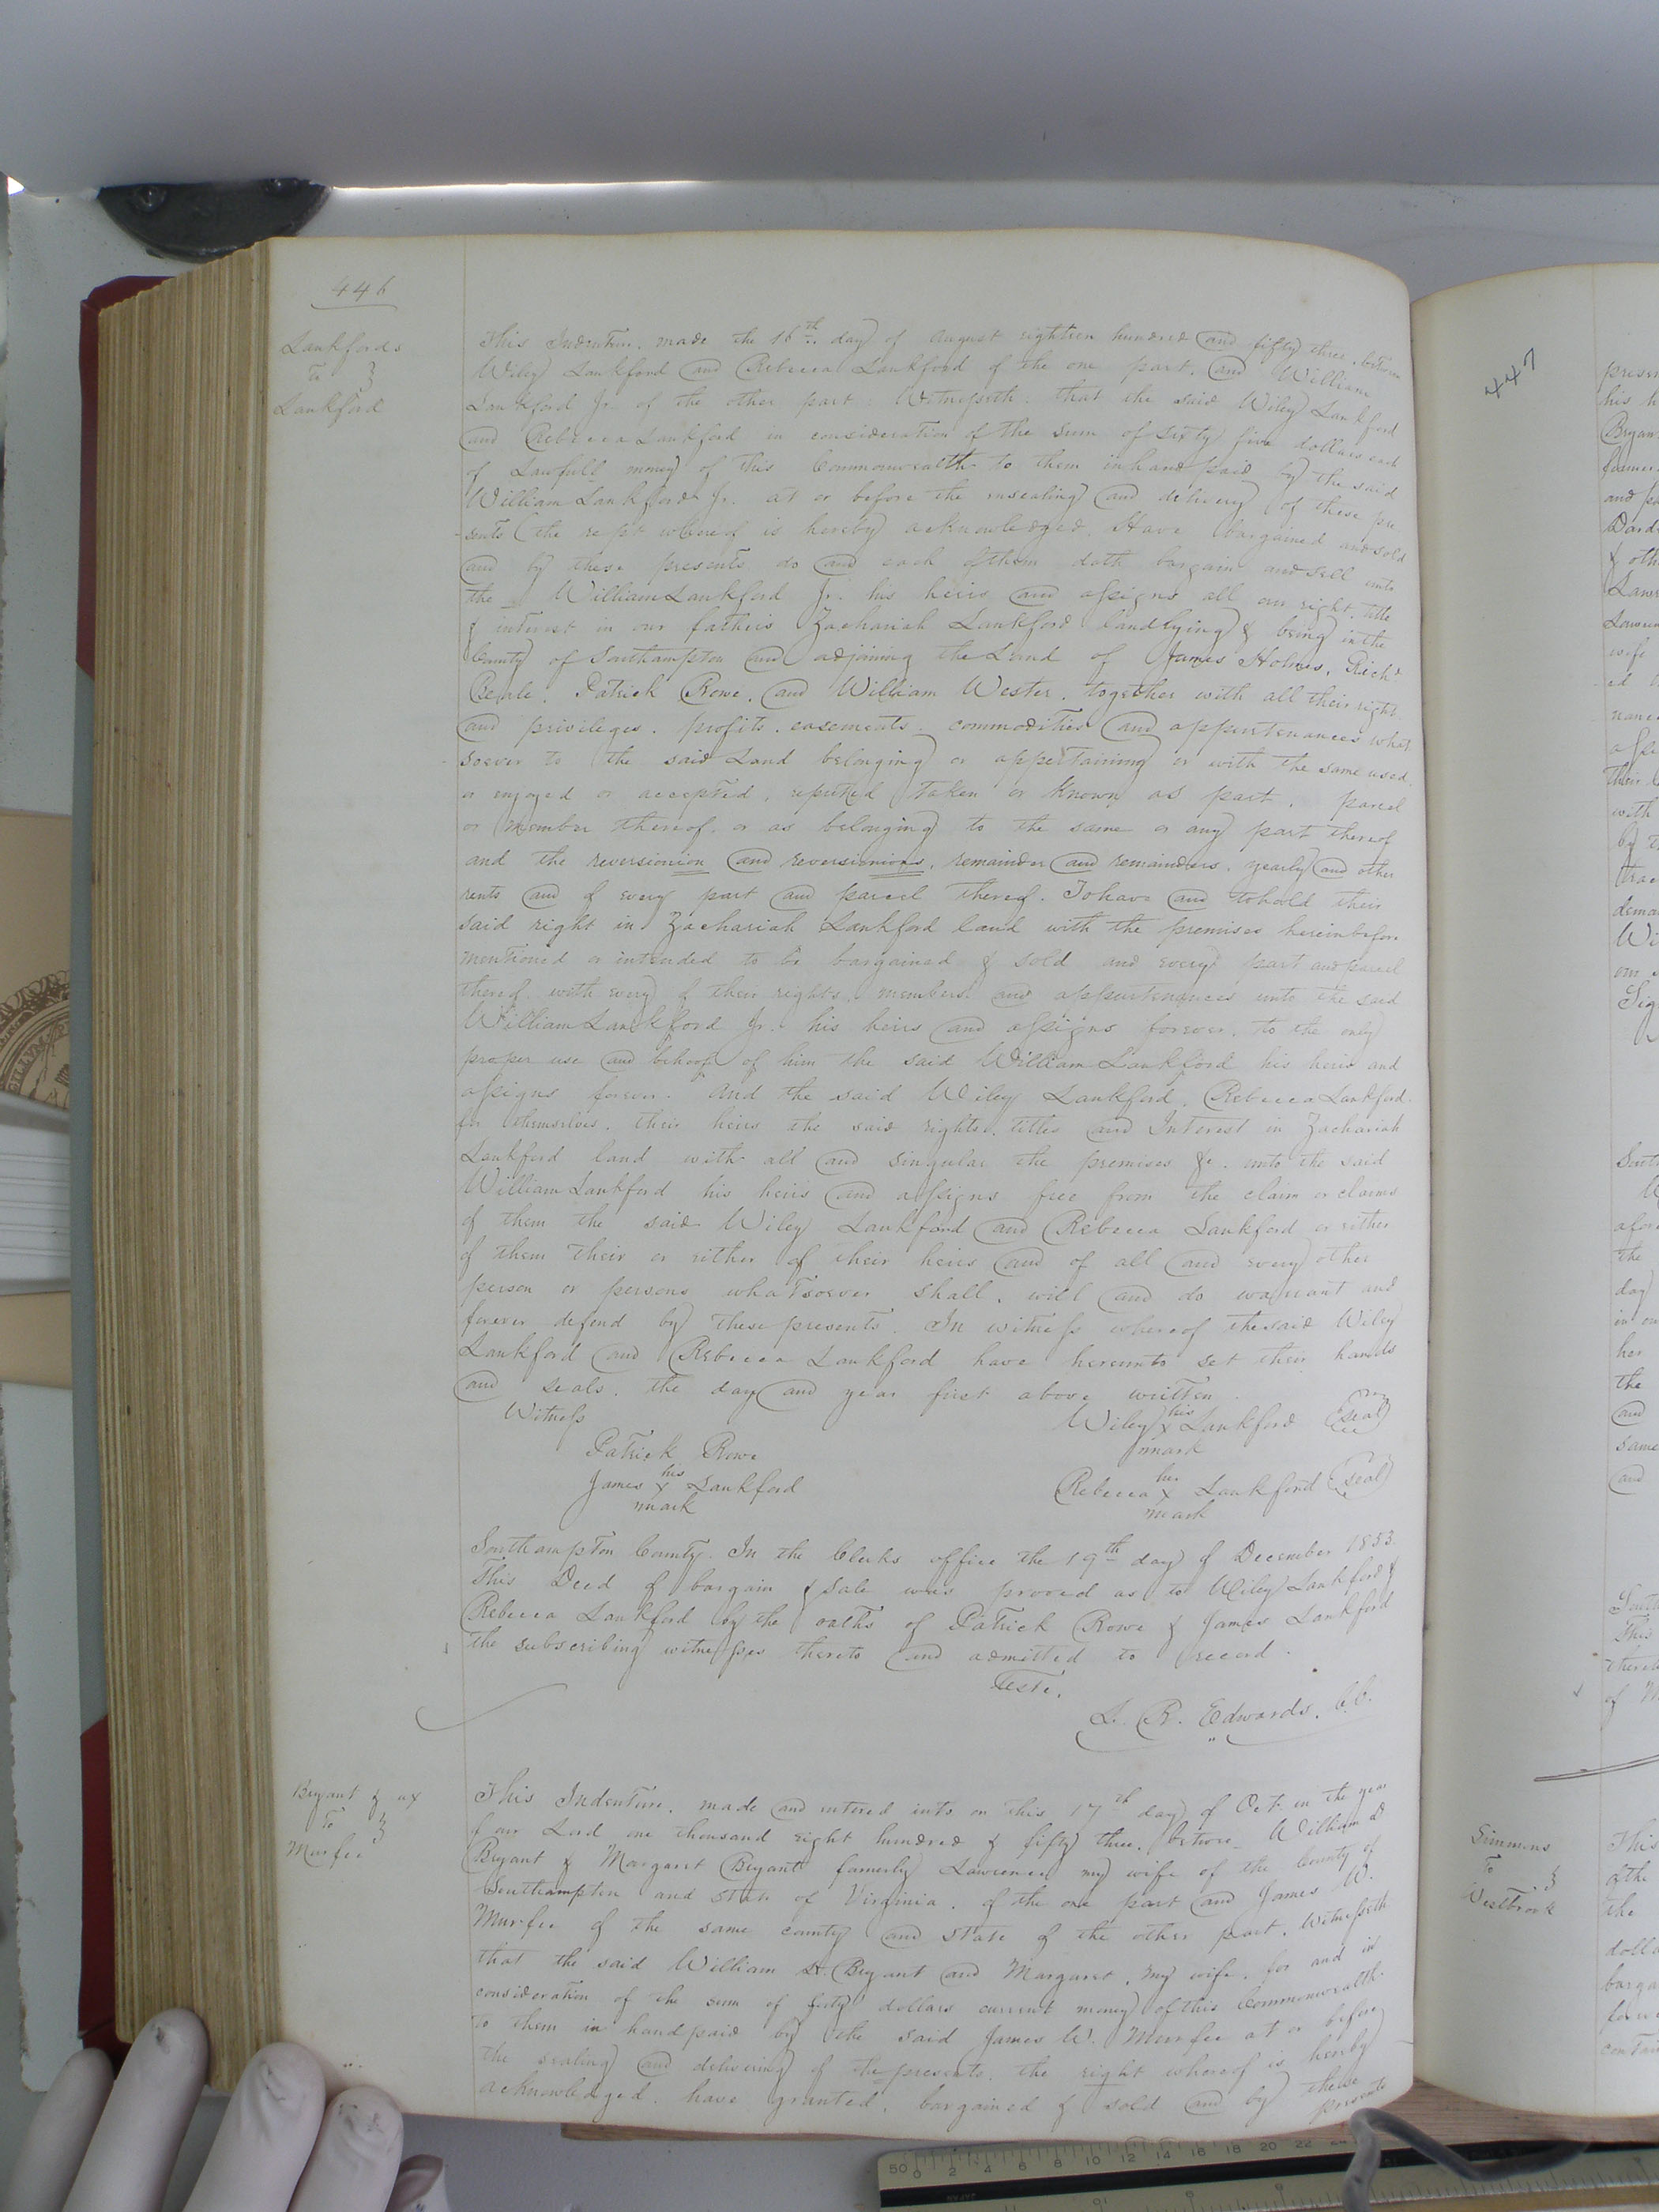 446
Lankfords
To
Lankford
This Indenture. made the 16th day of August eighteen hundred and fifty three. between
Wiley Lankford and Rebecca Lankford of the one part. and William
Lankford Jr. of the other part: Witnesseth. that the said Wiley Lankford
and Rebecca Lankford in consideration of the sum of sixty five dollars each
of Lawfull money of this Commonwealth to them in hand paid by the said
William Lankford Jr. at or before the ensealing and delivery of these pre
-sents (the rcpt whereof is hereby acknowledged. Have bargained and sold
and by these presents do and each of them doth bargain and sell unto
the William Lankford Jr. his heirs and assigns all our right. title
& interest in our fathers Zachariah Lankford land lying & being in the
County of Southampton and adjoining the Land of James Holmes, Richd
Beale. Patrick Rowe. and William Wester. together with all their right
and privileges. profits. easements. commodities and appurtenances what
soever to the said Land belonging or appertaining or with the same used
or enjoyed or accepted, reputed taken or known as part, parcel
or member thereof. or as belonging to the same or any part thereof
and the reversionion and reversionions, remainder and remainders. yearly and other
rents and of every part and parcel thereof. To have and to hold their
said right in Zachariah Lankford land with the premises hereinbefore
mentioned or intended to be bargained & sold and every part and parcel
thereof with every of their rights. members. and appurtenances unto the said
William Lankford Jr. his heirs and assigns forever. to the only
proper use and behoof of him the said William Lankford his heirs and
assigns forever. And the said Wiley Lankford, Rebecca Lankford.
for themselves. their heirs the said rights. titles and Interest in Zachariah
Lankford land with all and singular the premises &c. unto the said
William Lankford his heirs and assigns free from the claim or claims
of them the said Wiley Lankford and Rebecca Lankford or either
of them their or either of their heirs and of all and every other
person or persons whatsoever shall. will and do warrant and
forever defend by these presents. In witness whereof the said Wiley
Lankford and Rebecca Lankford have hereunto set their hands
and seals. the day and year first above written.
Witness
Patrick Rowe
James his x mark Lankford
Wiley his x mark Lankford (seal)
Rebecca her x mark Lankford (seal)
Southampton County. In the Clerks office the 19th day of December 1853.
This Deed of bargain & sale was proved as to Wiley Lankford &
Rebecca Lankford by the oaths of Patrick Rowe & James Lankford
the subscribing witnesses thereto and admitted to record.
Teste.
L. R. Edwards. C.C.
Bryant & ux
To
Murfee
This Indenture. made and entered into on this 17th day of Oct. in the year
of our Lord one thousand eight hundred & fifty three. between William D
Bryant & Margaret Bryant formerly Lawrence my wife of the County of
Southampton and State of Virginia. of the one part and James W.
Murfee of the same county and State of the other part. Witnesseth
that the said William D. Bryant and Margaret. my wife. for and in
consideration of the sum of forty dollars current money of this Commonwealth.
to them in hand paid by the said James W. Murfee at or before
the sealing and delivering of the presents. the right whereof is hereby
acknowledged. have granted. bargained & sold and by these
presents
447
Simmons
To
Westbrook